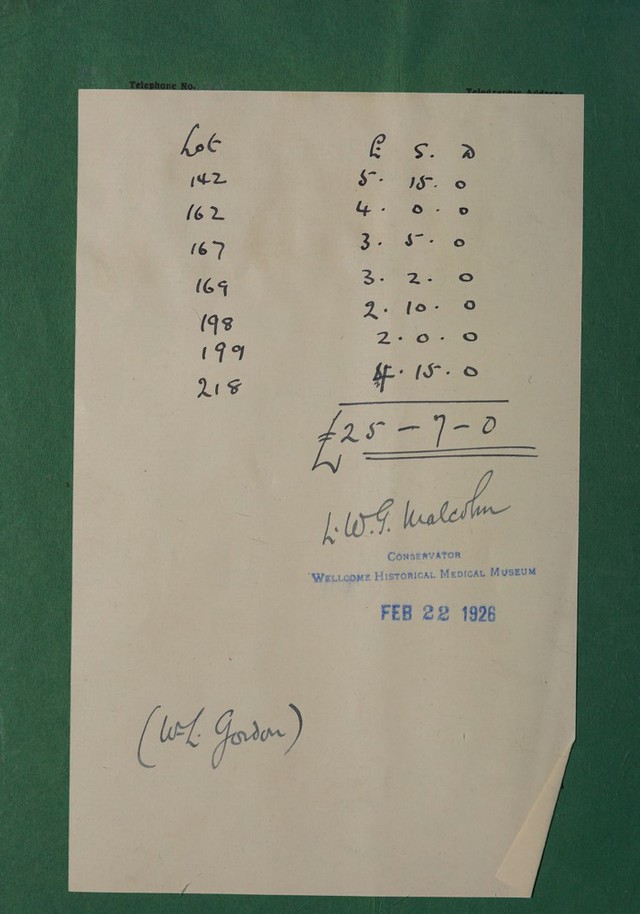 Telephone No. Telegraphic Address
Lot £ S. D
142 5. 15. 0
162 4. 0. 0
167 3. 5. 0
169 3. 2. 0
198 2. 10. 0
199 2. 0. 0
218 4. 15. 0
£25-7-0
L.W.G. Malcolm
CONSERVATOR
WELLCOME HISTORICAL MEDICAL MUSEUM
FEB 22 1926
(W.L. Gordon)